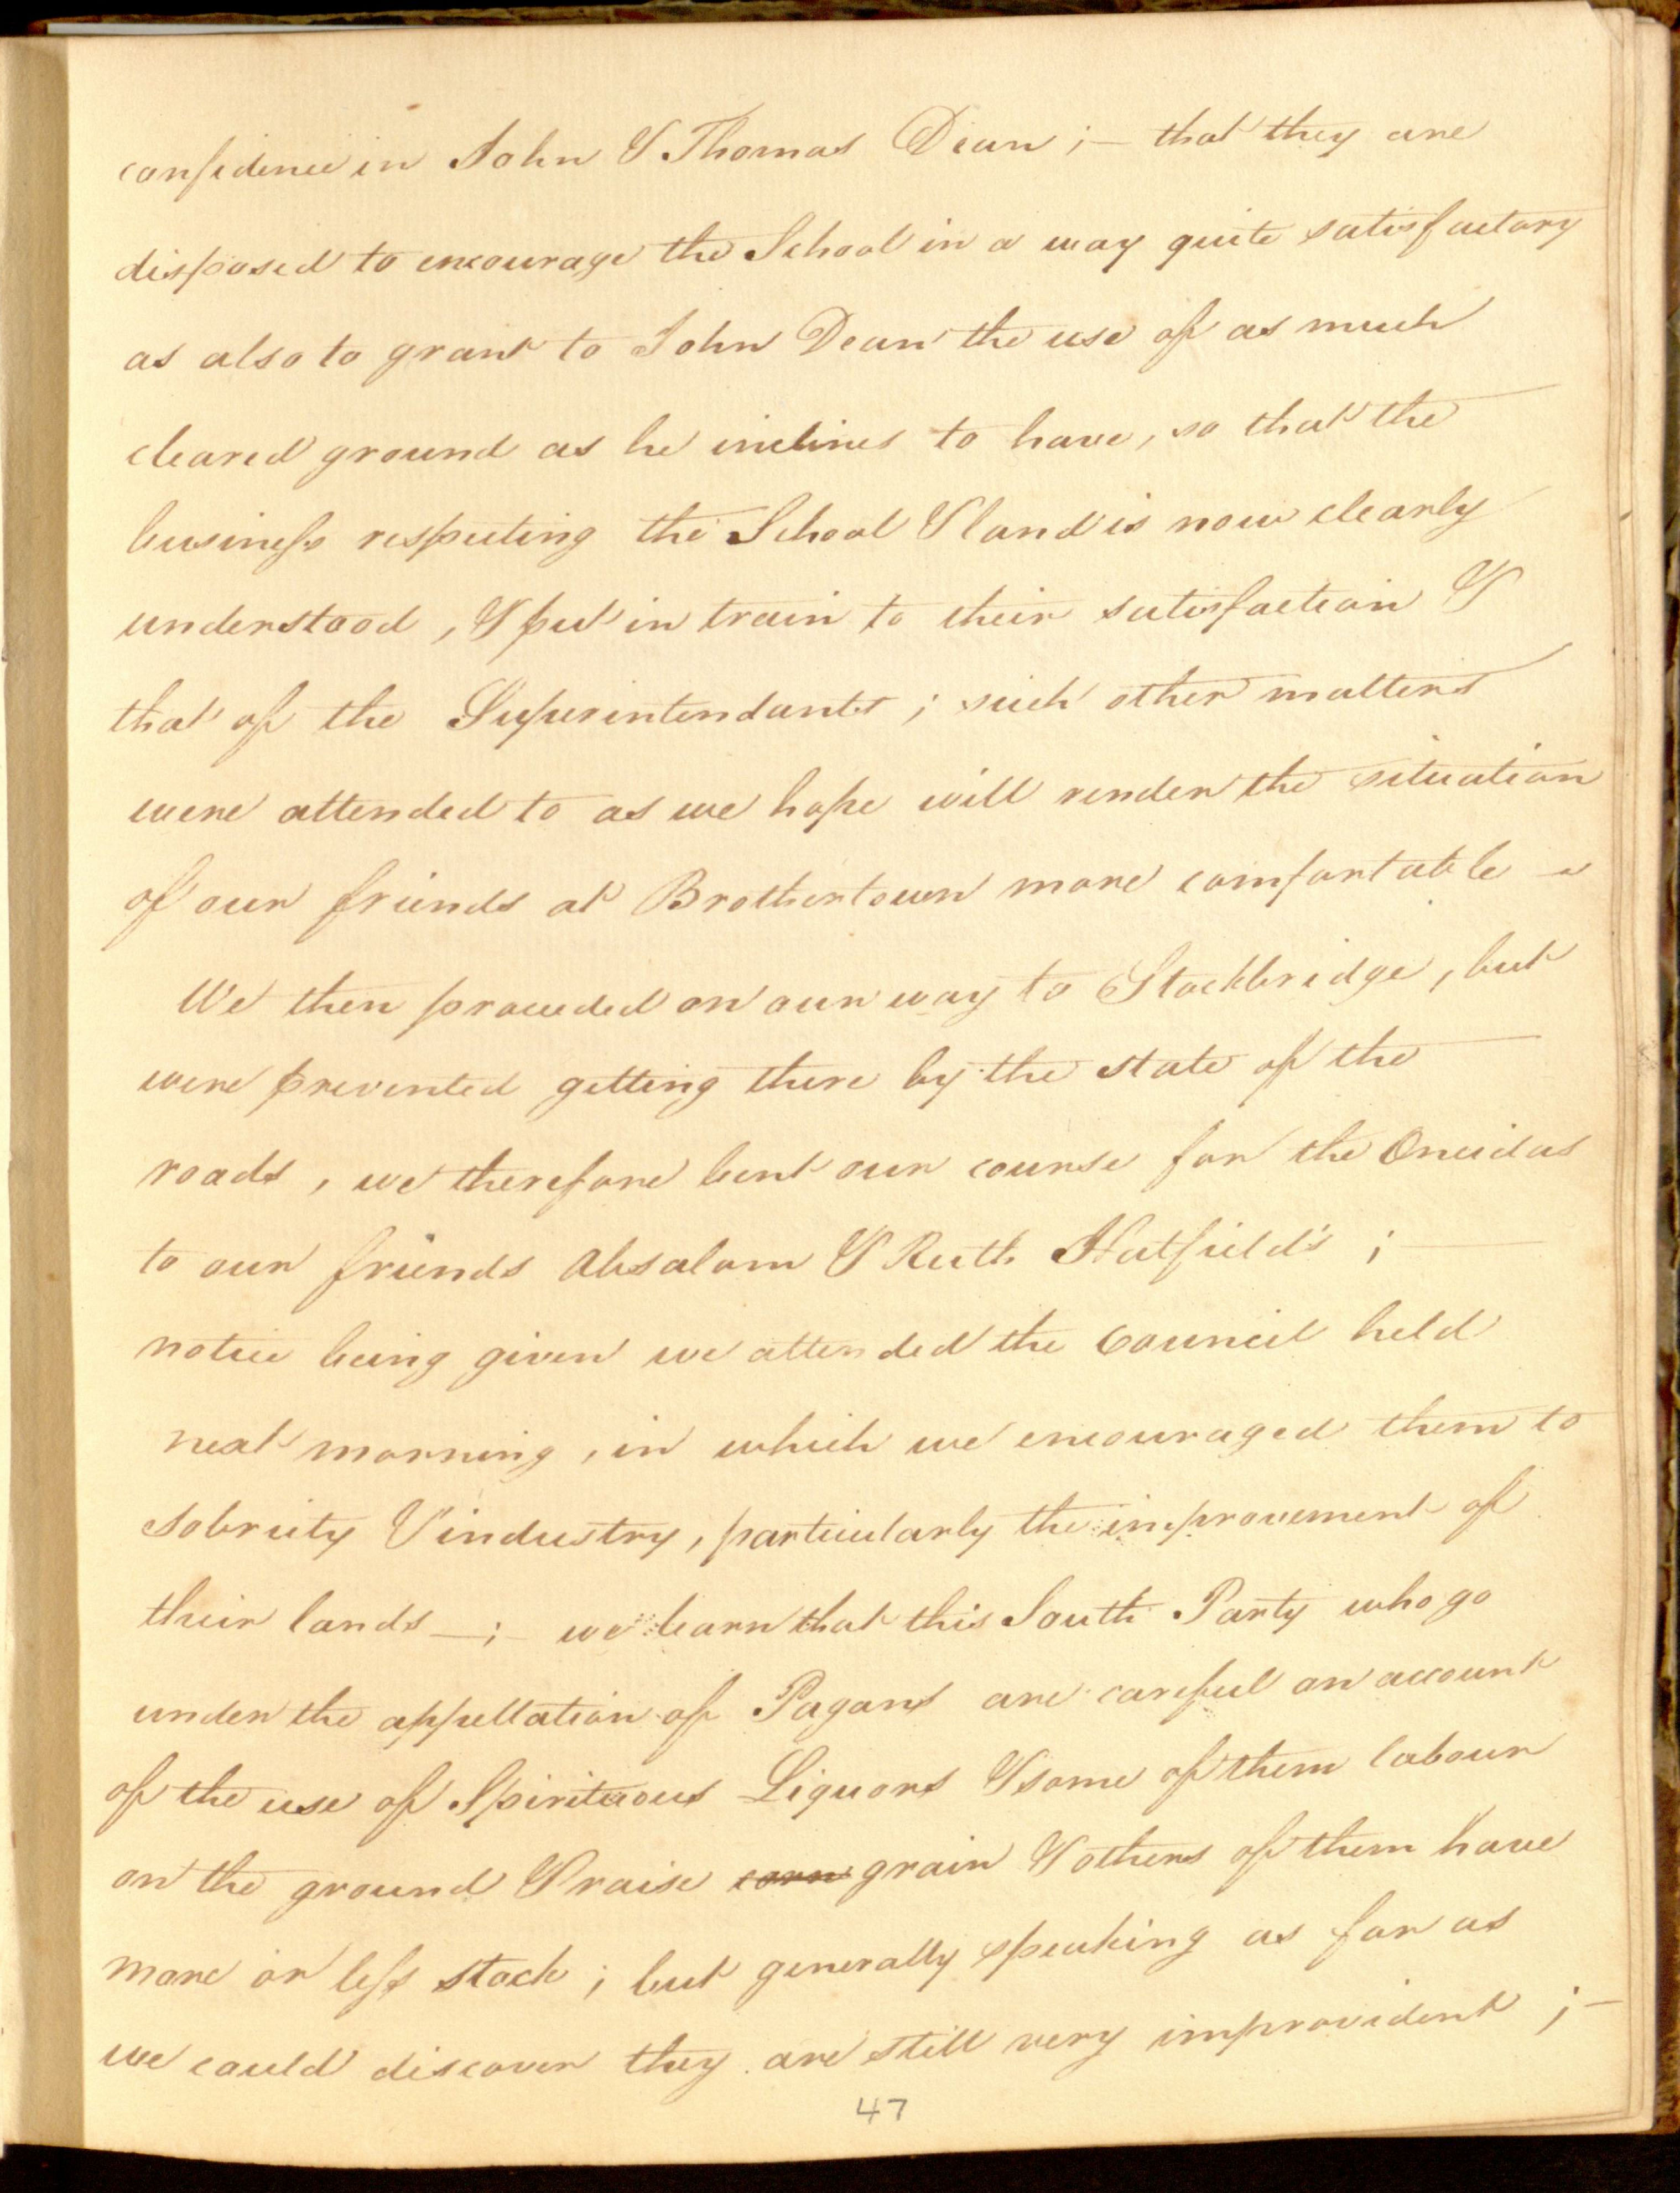 confidence in John & Thomas Dean ;— that they are
disposed to encourage the School in a way quite satisfactory
as also to grant to John Dean the use of as much
cleared ground as he inclines to have, so that the
business respecting the School & land is now clearly
understood, & put in train to their satisfaction &
that of the Superintendants ; such other matters
were attended to as we hope will render the situation
of our friends at Brothertown more comfortable —
We then proceeded on our way to Stockbridge, but
were prevented getting there by the state of the
roads, we therefore bent our course for the Oneidas
to our friends Absalom & Ruth Hatfield's ; —
notice being given we attended the Council held
next morning, in which we encouraged them to
sobriety & industry, particularly the improvement of
their lands —;— we learn that this South Party who go
under the appellation of Pagans are careful on account
of the use of Spirituous Liquors & some of them labour
on the ground & raise corn grain & others of them have
more or less stock ; but generally speaking as far as
we could discover they are still very improvident ;—
47